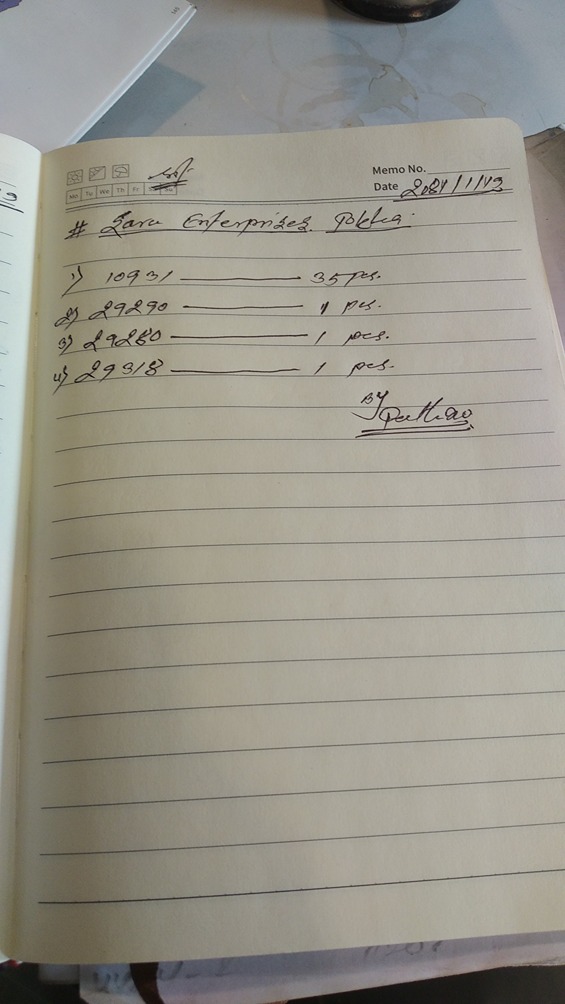 Memo No.
Mo Tu We Th Fr Sa Su
Date 2081/1/13
# Zara Enterprises.
1) 10931 — 35 pcs.
2) 29290 — 1 pcs.
3) 29280 — 1 pcs.
4) 29318 — 1 pcs.
By
Pathao